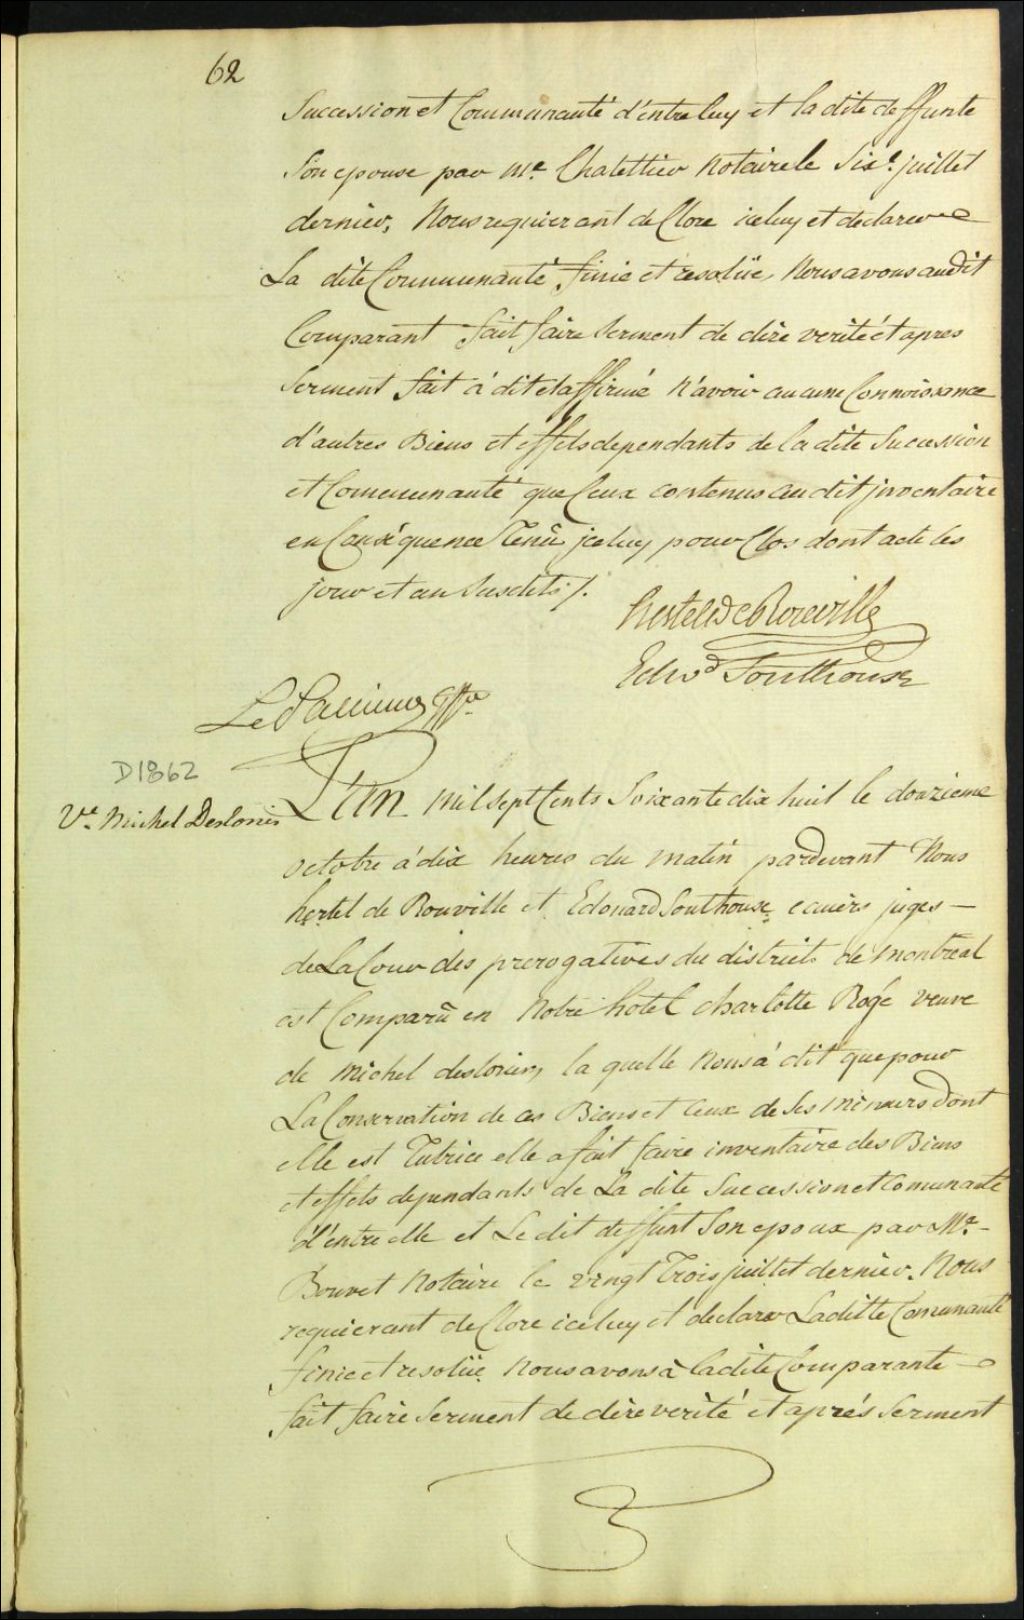 62
Succession et Communauté d'entre luy et la dite deffunte
Son epouse par Me. Chatellier Notaire le Sixe. juillet
dernier, Nous requierant de Clore iceluy et declarer
La dite Communauté finie et resolüe, Nous avons audit
Comparant fait faire Serment de dire verité et apres
Serment fait à dit et affirmé N'avoir aucune Connoissance
d'autres Biens et effets dependants de la dite Succession
et Communauté que Ceux contenus audit jnventaire
en Conséquence Tenû jceluy pour Clos dont acte les
jour et an Susdits /.
hertel De Rouville
Edwd Southouse
Le Pallieur Gffr
D1862
Ve. Michel Deslorier
L'An mil sept Cents Soixante dix huit le douzieme
octobre à dix heures du matin pardevant Nous
hertel de Rouville et Edouard Southouse ecuiers juges
de La Cour des prerogatives du district de Montreal
est Comparû en Notre hotel charlotte Rogé veuve
de Michel deslorier, la quelle Nous à dit que pour
La Conservation de ces Biens et Ceux de Ses Mineurs dont
elle est Tutrice elle a fait faire inventaire des Biens
et effets dependants de La dite Succession et Comunauté
d'entre elle et Le dit deffunt Son epoux par Me.
Bouvet Notaire le vingt Trois juillet dernier. Nous
requierant de Clore iceluy et declarer Laditte Comunauté
finie et resolüe Nous avons à Ladite Comparante
fait faire Serment de dire verité et aprés Serment